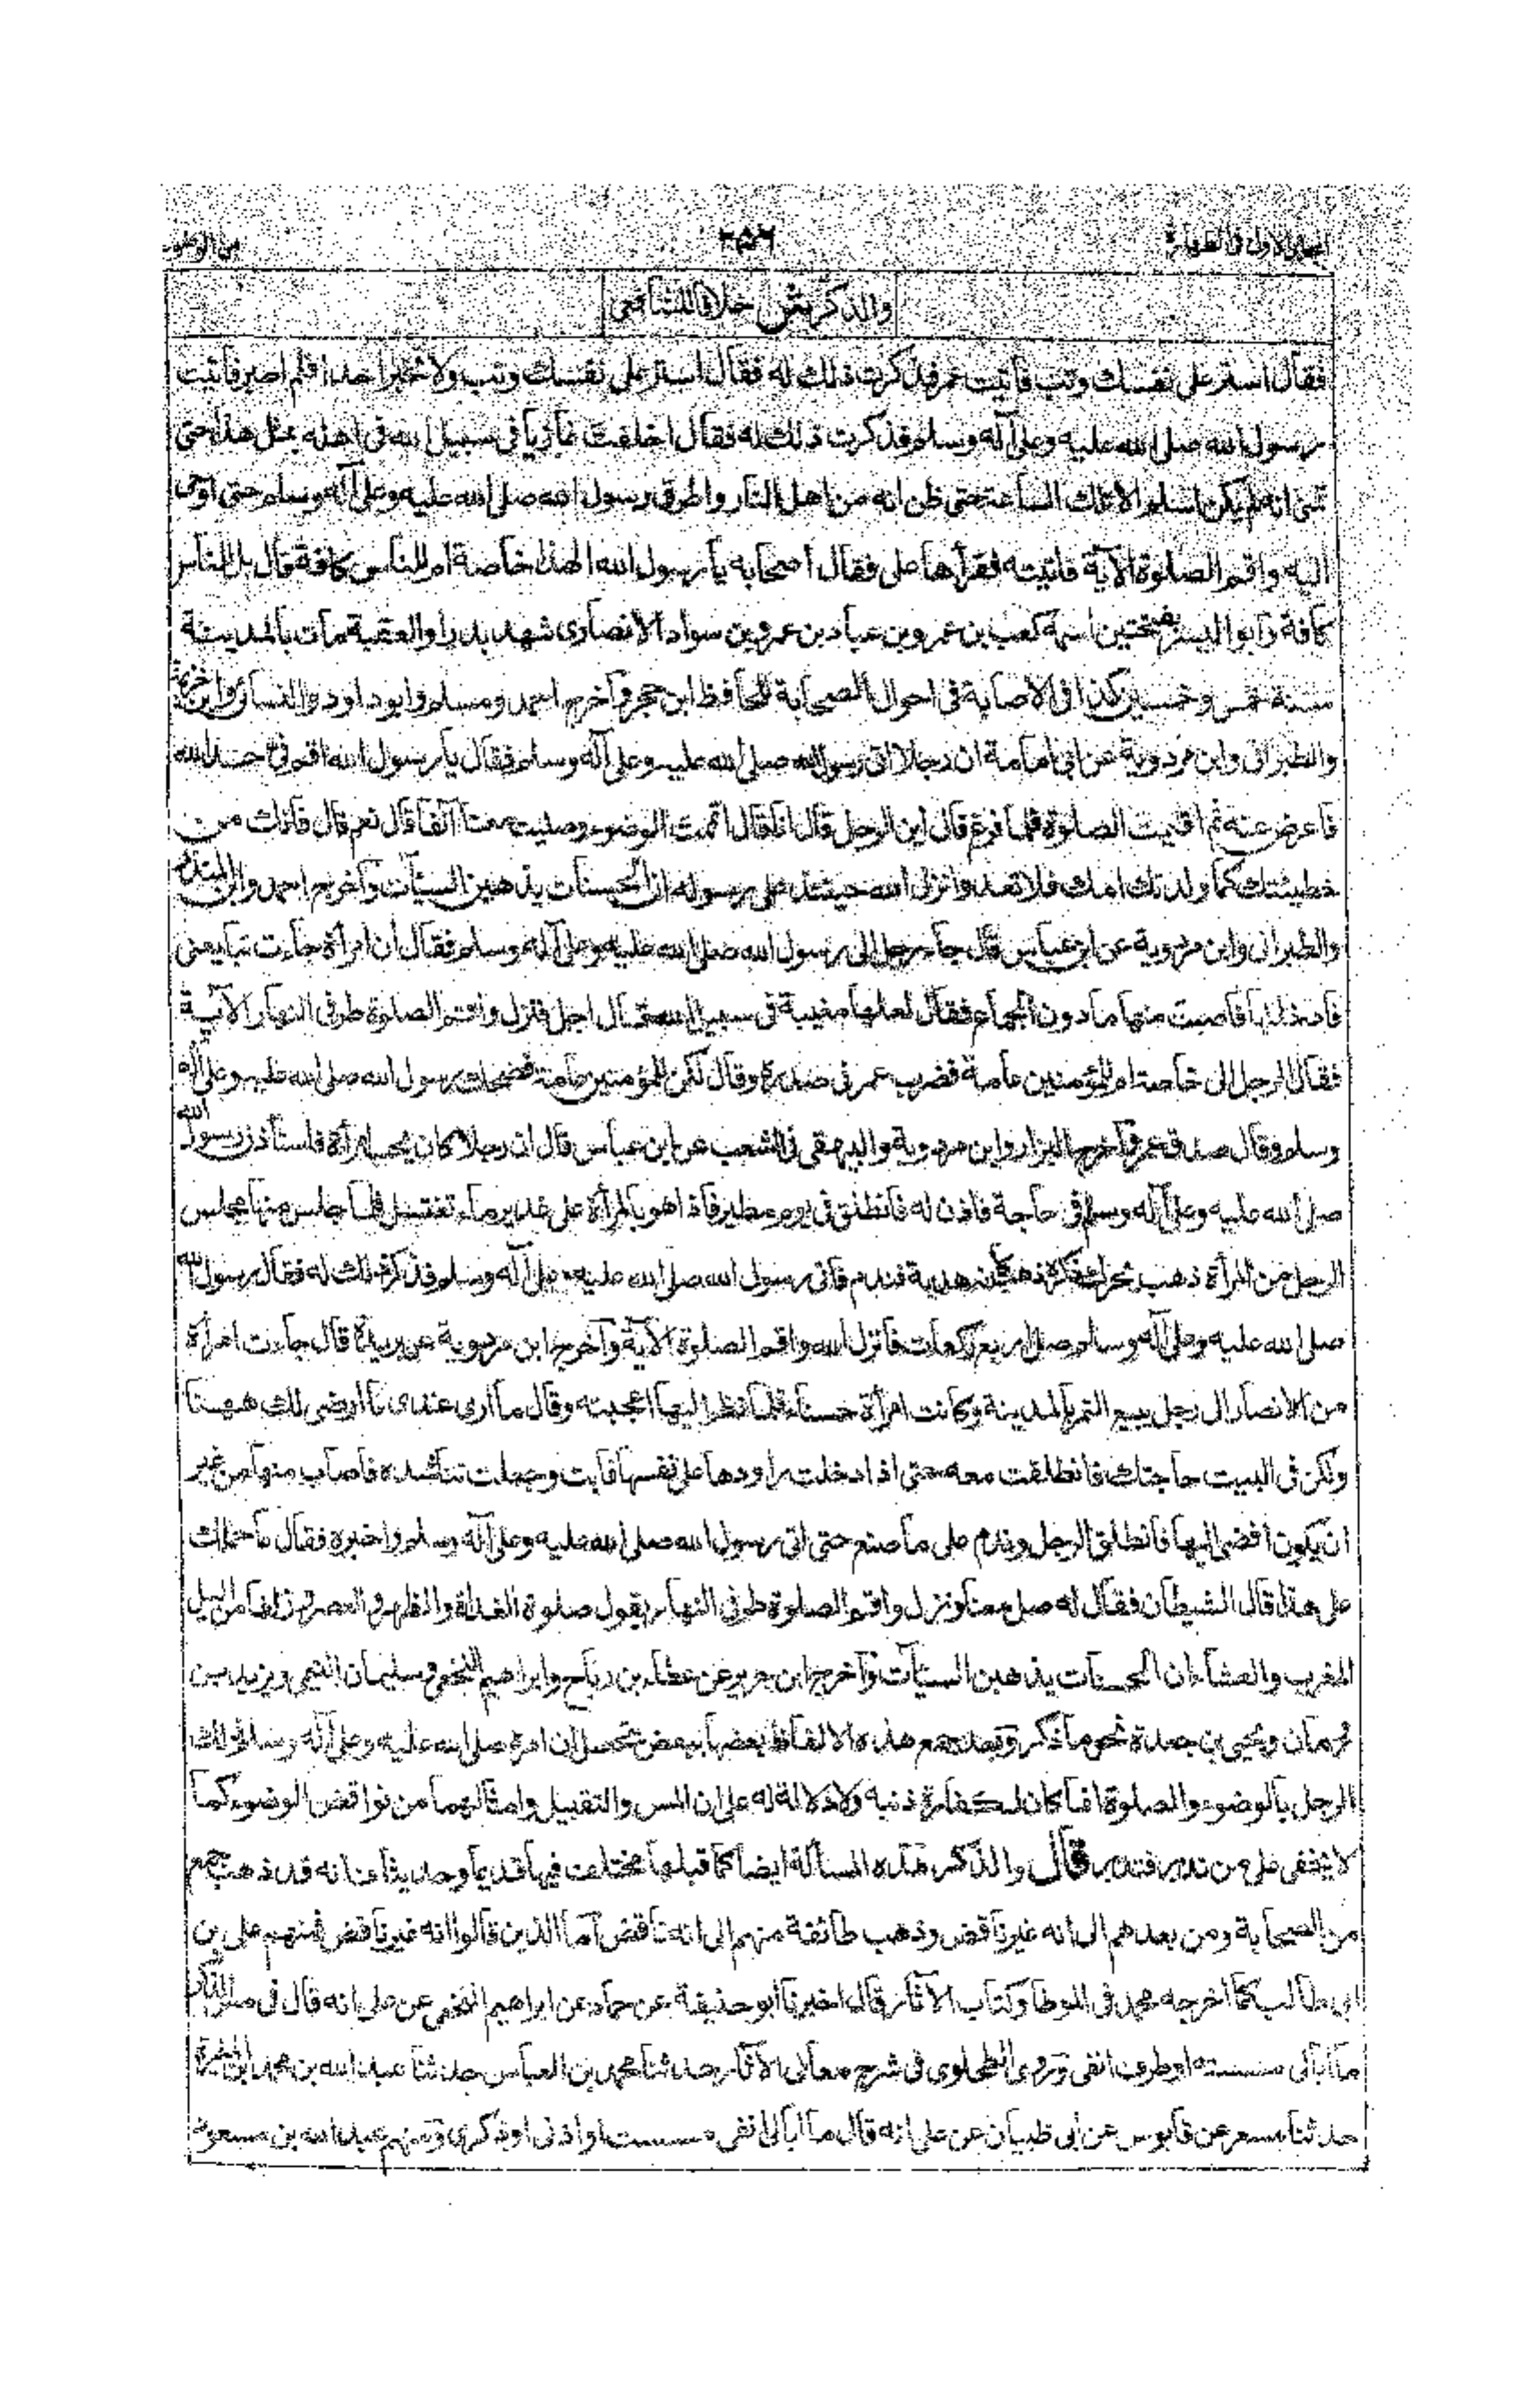 المجلد الاول فى الطهارة ٢٥٦ من الوضوء
والذكر بشئ خلافا للشافعى
فقال استر على نفسك وتب فاتيت عمر فذكرت ذلك له فقال استر على نفسك وتب ولا تخبر احدا فلم اصبر فاتيت
رسول الله صلى الله عليه وعلى آله وسلم فذكرت ذلك له فقال اخلفت غازيا فى سبيل الله فى اهله بمثل هذا حتى
تمنى انه لم يكن اسلم الا تلك الساعة حتى ظن انه من اهل النار واطرق رسول الله صلى الله عليه وعلى آله وسلم حتى اوحى
اليه واقم الصلوة الآية فاتيته فقرأها على فقال اصحابه يا رسول الله الهذا خاصة ام للناس كافة قال بل للناس
كافة وابو اليسر بفتحتين اسمه كعب بن عمرو بن عباد بن عمرو بن سواد الانصارى شهد بدرا والعقبة مات بالمدينة
سنة خمس وخمسين كذا فى الاصابة فى احوال الصحابة للحافظ ابن حجر وآخرج احمد ومسلم وابو داود والنسائى وابن خزيمة
والطبرانى وابن مردوية عن ابى امامة ان رجلا اتى رسول الله صلى الله عليه وعلى آله وسلم فقال يا رسول الله اقم فى حد الله
فاعرض عنه ثم اقيمت الصلوة فلما فرغ قال اين الرجل قال انا قال اتممت الوضوء وصليت معنا آنفا قال نعم قال فانك من
خطيئتك كما ولدتك امك فلا تعد وانزل الله حينئذ على رسوله ان الحسنات يذهبن السيئات وآخرج احمد وابن المنذر
والطبرانى وابن مردوية عن ابن عباس قال جاء رجل الى رسول الله صلى الله عليه وعلى آله وسلم فقال ان امرأة جاءت تبايعنى
فادخلتها فاصبت منها ما دون الجماع فقال لعلها مغيبة فى سبيل الله قال اجل فنزل واقم الصلوة طرفى النهار الآية
فقال الرجل الى خاصة ام للمؤمنين عامة فضرب عمر فى صدره وقال لكن للمؤمنين عامة فضحك رسول الله صلى الله عليه وعلى آله
وسلم وقال صدق عمر وآخرج البزار وابن مردوية والبيهقى فى الشعب عن ابن عباس قال ان رجلا كان يحب امرأة فاستأذن رسول الله
صلى الله عليه وعلى آله وسلم فى حاجة فاذن له فانطلق فى يوم مطير فاذا هو بالمرأة على غدير ماء تغتسل فلما جلس منها مجلس
الرجل من المرأة ذهب يحرك ذكره فاذا هو كانه هدبة فندم فاتى رسول الله صلى الله عليه وعلى آله وسلم فذكر ذلك له فقال رسول الله
صلى الله عليه وعلى آله وسلم صل اربع ركعات فانزل الله واقم الصلوة الآية وآخرج ابن مردوية عن بريدة قال جاءت امرأة
من الانصار الى رجل يبيع التمر بالمدينة وكانت امرأة حسناء فلما نظر اليها اعجبته وقال ما ارى عندى ما ارضى لك ههنا
ولكن فى البيت حاجتك فانطلقت معه حتى اذا دخلت راودها على نفسها فابت وجعلت تناشده فاصاب منها من غير
ان يكون افضى اليها فانطلق الرجل وندم على ما صنع حتى اتى رسول الله صلى الله عليه وعلى آله وسلم واخبره فقال ما حملك
على هذا قال الشيطان فقال له صل معنا ونزل واقم الصلوة طرفى النهار يقول صلوة الغداة والظهر والعصر وزلفا من الليل
المغرب والعشاء ان الحسنات يذهبن السيئات وآخرج ابن جرير عن عطاء بن رباح وابراهيم النخعى وسليمان التيمى ويزيد بن
رومان ويحيى بن جعدة نحو ما ذكر وبعد جمع هذه الالفاظ بعضها ببعض تحصل ان امره صلى الله عليه وعلى آله وسلم لذلك
الرجل بالوضوء والصلوة انما كان لكفارة ذنبه ولا دلالة له على ان المس والتقبيل وامثالهما من نواقض الوضوء كما
لا يخفى على من تدبر فتدبر قال والذكر هذه المسألة ايضا كما قبلها مختلف فيها قديما وحديثا فانه قد ذهب جمع
من الصحابة ومن بعدهم الى انه غير ناقض وذهب طائفة منهم الى انه ناقض آما الذين قالوا انه غير ناقض فمنهم على بن
ابى طالب كما اخرجه محمد فى الموطا وكتاب الآثار قال اخبرنا ابو حنيفة عن حماد عن ابراهيم النخعى عن على انه قال فى مس الذكر
ما ابالى مسسته او طرف انفى وروى الطحاوى فى شرح معانى الآثار حدثنا محمد بن العباس حدثنا عبد الله بن محمد بن المغيرة
حدثنا مسعر عن قابوس عن ابى ظبيان عن على انه قال ما ابالى انفى مسست او اذنى او ذكرى ومنهم عبد الله بن مسعود